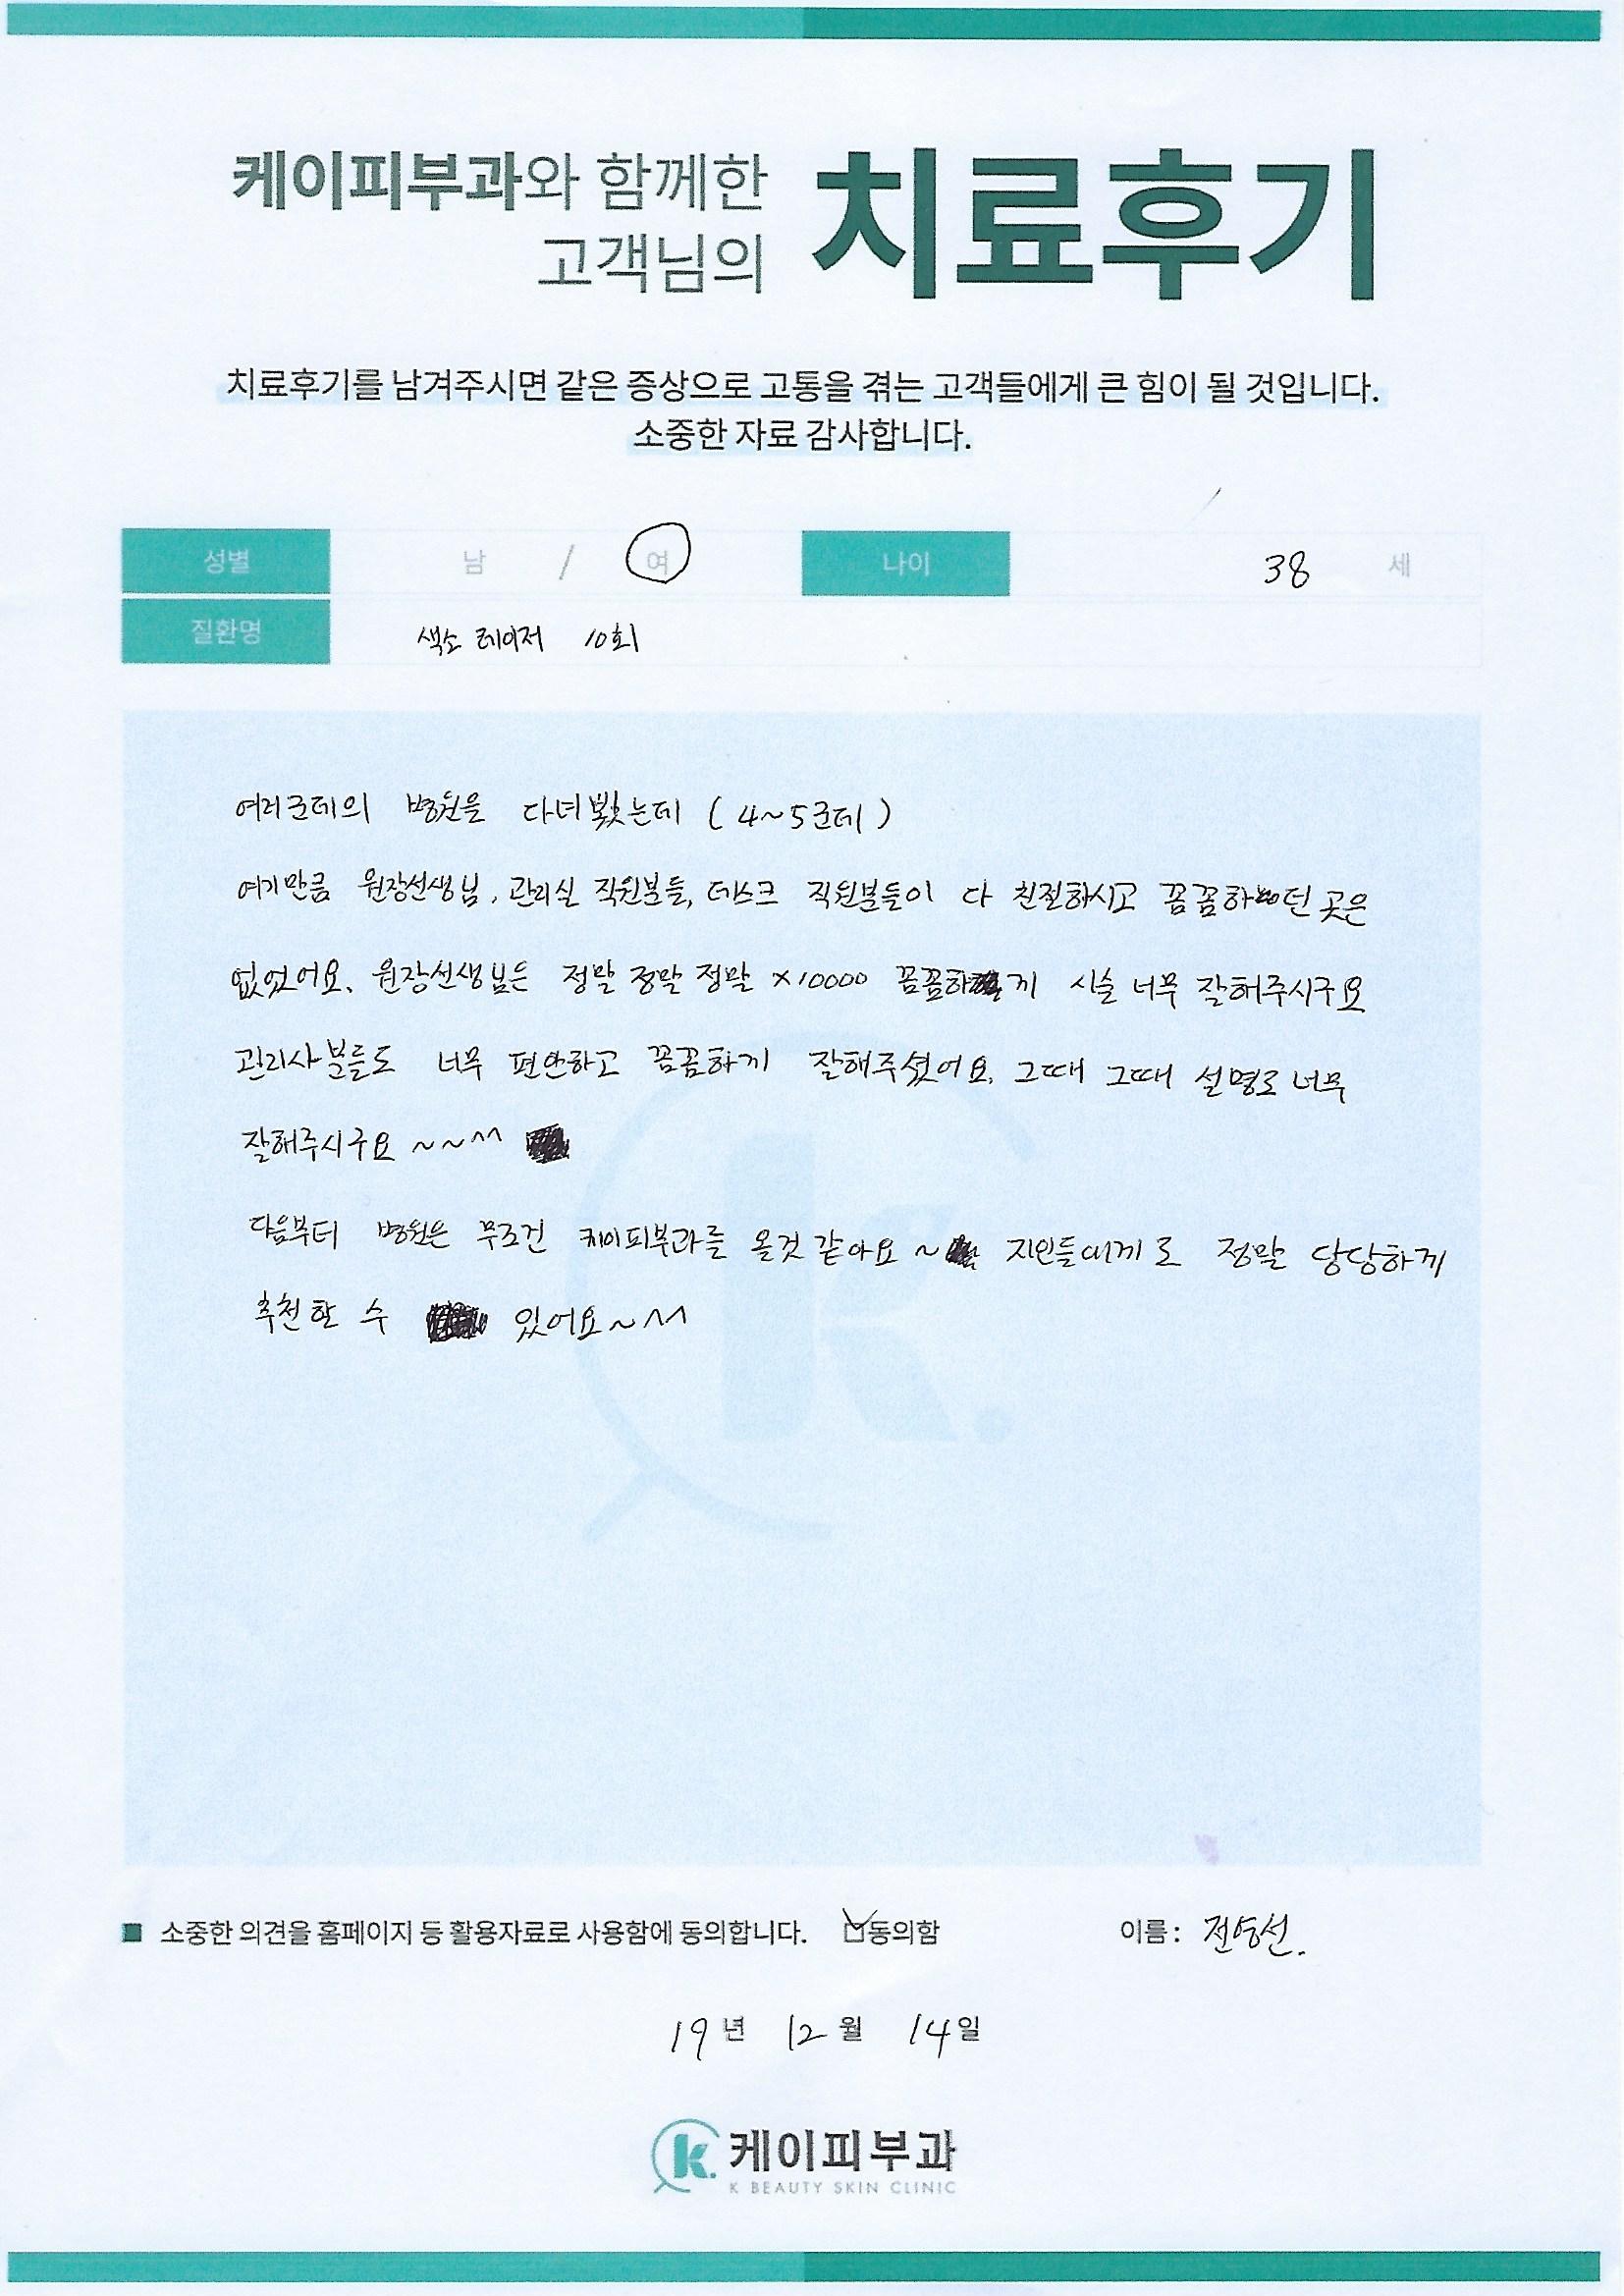 케이피부과와 함께한
고객님의
치료후기
치료후기를 남겨주시면 같은 증상으로 고통을 겪는 고객들에게 큰 힘이 될 것입니다.
소중한 자료 감사합니다.
성별 남 / 여 나이 38 세
질환명 색소 레이저 10회
여러군데의 병원을 다녀봤는데 (4~5군데)
여기만큼 원장선생님, 관리실 직원분들, 데스크 직원분들이 다 친절하시고 꼼꼼하던 곳은
없었어요. 원장선생님은 정말 정말 정말 ×10000 꼼꼼하게 시술 너무 잘해주시구요
관리사분들도 너무 편안하고 꼼꼼하게 잘해주셨어요. 그때 그때 설명도 너무
잘해주시구요 ~~^^
다음부터 병원은 무조건 케이피부과를 올것 같아요 ~ 지인들에게도 정말 당당하게
추천할 수 있어요~^^
k.
■ 소중한 의견을 홈페이지 등 활용자료로 사용함에 동의합니다. ☑동의함 이름 : 전영선.
19년 12월 14일
k. 케이피부과
K BEAUTY SKIN CLINIC